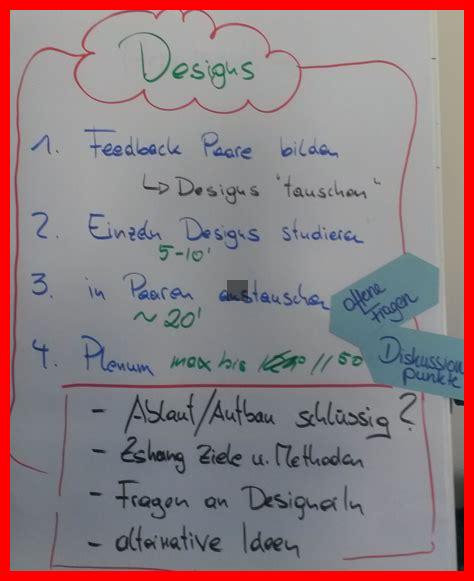 Designs
1. Feedback Paare bilden
↳ Designs "tauschen"
2. Einzeln Designs studieren
5-10'
3. in Paaren austauschen
~ 20'
offene Fragen
4. Plenum max bis 11 50
Diskussion
punkte
- Ablauf/Aufbau schlüssig?
- Zshang Ziele u. Methoden
- Fragen an DesignerIn
- alternative Ideen